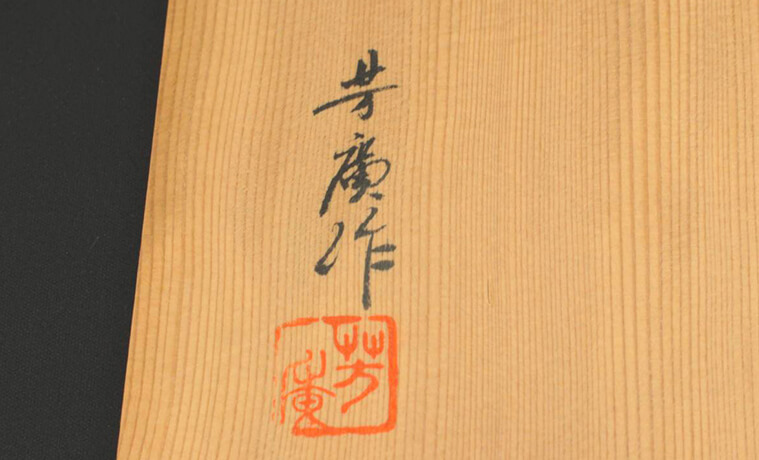 芳廣作
芳廣